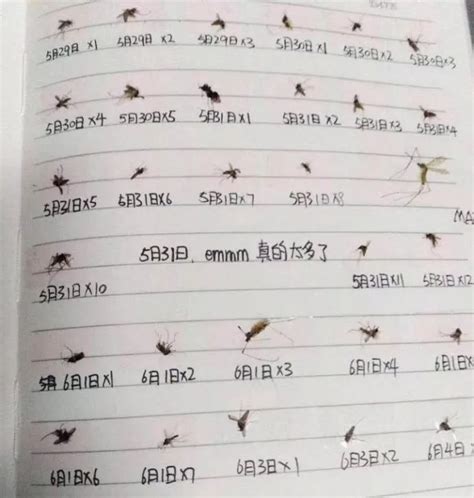 DATE
5月29日 x1 5月29日 x2 5月29日 x3 5月30日 x1 5月30日 x2 5月30日 x3
5月30日 x4 5月30日 x5 5月31日 x1 5月31日 x2 5月31日 x3 5月31日 x4
5月31日 x5 5月31日 x6 5月31日 x7 5月31日 x8
MA
5月31日 x10 5月31日, emmm 真的太多了 5月31日 x11 5月31日 x12
6月1日 x1 6月1日 x2 6月1日 x3 6月1日 x4 6月1日
6月1日 x6 6月1日 x7 6月3日 x1 6月3日 x2 6月4日